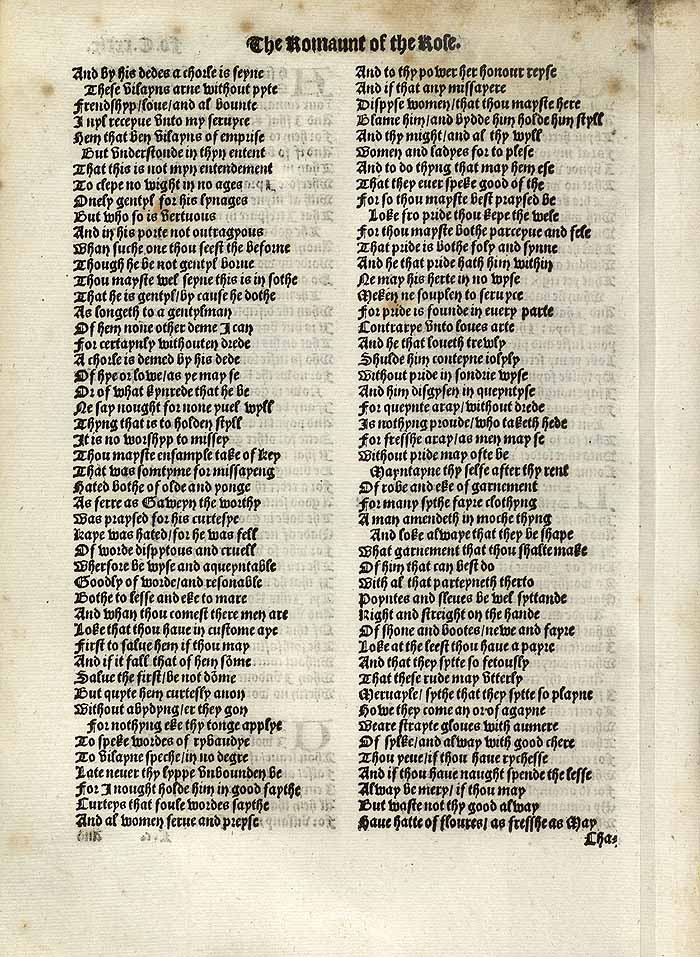 The Romaunt of the Rose.
And by his dedes a chorle is seyne
These vilayns arne without pyte
Frendshyp/loue/and al bounte
I nyl receyue vnto my seruyce
Hem that ben vilayns of emprise
But vnderstonde in thyn entent
That this is not myn entendement
To clepe no wight in no ages
Onely gentyl for his lynages
But who so is vertuous
And in his porte not outragyous
Whan suche one thou seest the beforne
Though he be not gentyl borne
Thou mayste wel seyne this is in sothe
That he is gentyl/by cause he dothe
As longeth to a gentylman
Of hem none other deme I can
For certaynly withouten drede
A chorle is demed by his dede
Of hye or lowe/as ye may se
Or of what kynrede that he be
Ne say nought for none yuel wyll
Thyng that is to holden styll
It is no worshyp to missey
Thou mayste ensample take of key
That was somtyme for missayeng
Hated bothe of olde and yonge
As ferre as Gaweyn the worthy
Was praysed for his curtesye
Kaye was hated/for he was fell
Of worde dispytous and cruell
Wherfore be wyse and aqueyntable
Goodly of worde/and resonable
Bothe to lesse and eke to mare
And whan thou comest there men are
Loke that thou haue in custome aye
First to salue hem if thou may
And if it fall that of hem sōme
Salue the first/be not dōme
But quyte hem curtesly anon
Without abydyng/er they gon
For nothyng eke thy tonge applye
To speke wordes of rybaudye
To vilayne speche/in no degre
Late neuer thy lyppe vnbounden be
For I nought holde him in good faythe
Curteys that foule wordes saythe
And al women serue and preyse
And to thy power her honour reyse
And if that any missayere
Dispyse women/that thou mayste here
Blame him/and bydde him holde him styll
And thy might/and al thy wyll
Women and ladyes for to plese
And to do thyng that may hem ese
That they euer speke good of the
For so thou mayste best praysed be
Loke fro pride thou kepe the wele
For thou mayste bothe parceyue and fele
That pride is bothe foly and synne
And he that pride hath him within
Ne may his herte in no wyse
Meken ne souplen to seruyce
For pride is founde in euery parte
Contrarye vnto loues arte
And he that loueth trewly
Shulde him conteyne iolyly
Without pride in sondrie wyse
And him disgysen in queyntyse
For queynte aray/without drede
Is nothyng proude/who taketh hede
For fresshe aray/as men may se
Without pride may ofte be
Mayntayne thy selfe after thy rent
Of robe and eke of garnement
For many sythe fayre clothyng
A man amendeth in moche thyng
And loke alwaye that they be shape
What garnement that thou shalte make
Of him that can best do
With al that parteyneth therto
Poyntes and sleues be wel syttande
Right and streight on the hande
Of shone and bootes/newe and fayre
Loke at the leest thou haue a payre
And that they sytte so fetously
That these rude may vtterly
Meruayle/sythe that they sytte so playne
Howe they come on or of agayne
Weare strayte gloues with aumere
Of sylke/and alway with good chere
Thou yeue/if thou haue rychesse
And if thou haue naught spende the lesse
Alway be mery/if thou may
But waste not thy good alway
Haue hatte of floures/as fresshe as May
Cha-